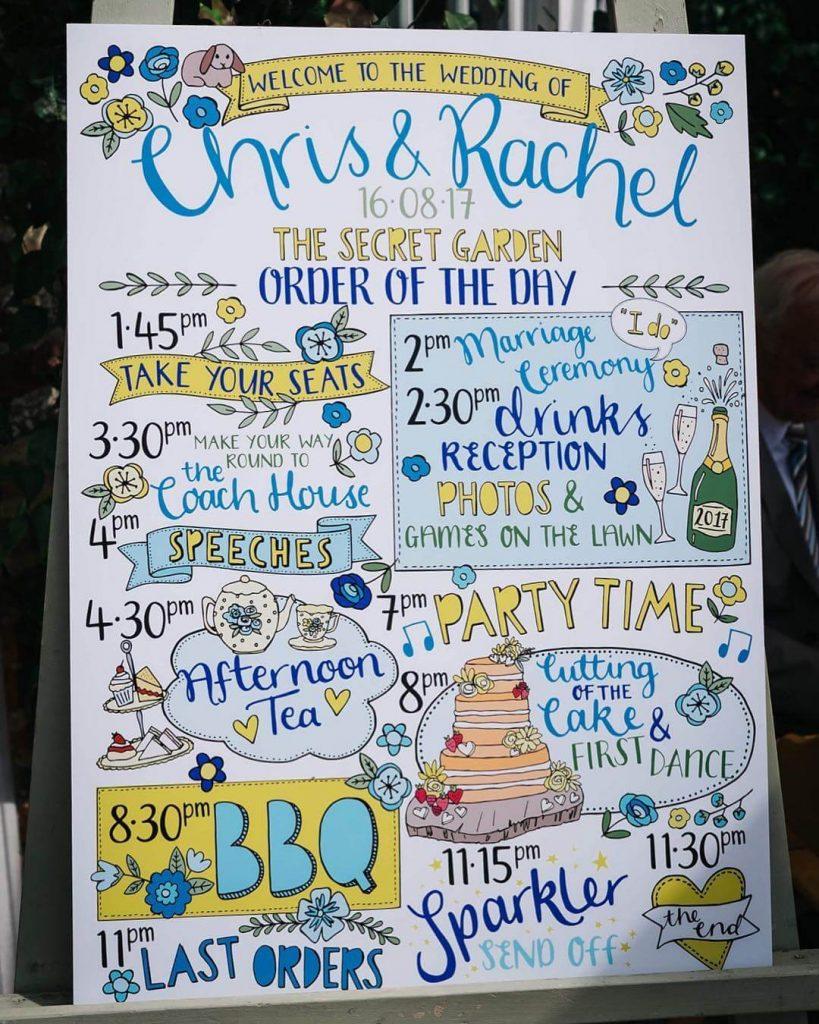 WELCOME TO THE WEDDING OF
Chris & Rachel
16·08·17
THE SECRET GARDEN
ORDER OF THE DAY
1·45pm
TAKE YOUR SEATS
2pm Marriage
Ceremony
"I do"
2·30pm drinks
RECEPTION
PHOTOS &
GAMES ON THE LAWN
2017
3·30pm MAKE YOUR WAY
ROUND TO
the
Coach House
4pm
SPEECHES
4·30pm
Afternoon
Tea
7pm PARTY TIME
8pm Cutting
OF THE
Cake &
FIRST DANCE
8·30pm BBQ
11pm
LAST ORDERS
11·15pm
Sparkler
SEND OFF
11·30pm
the end